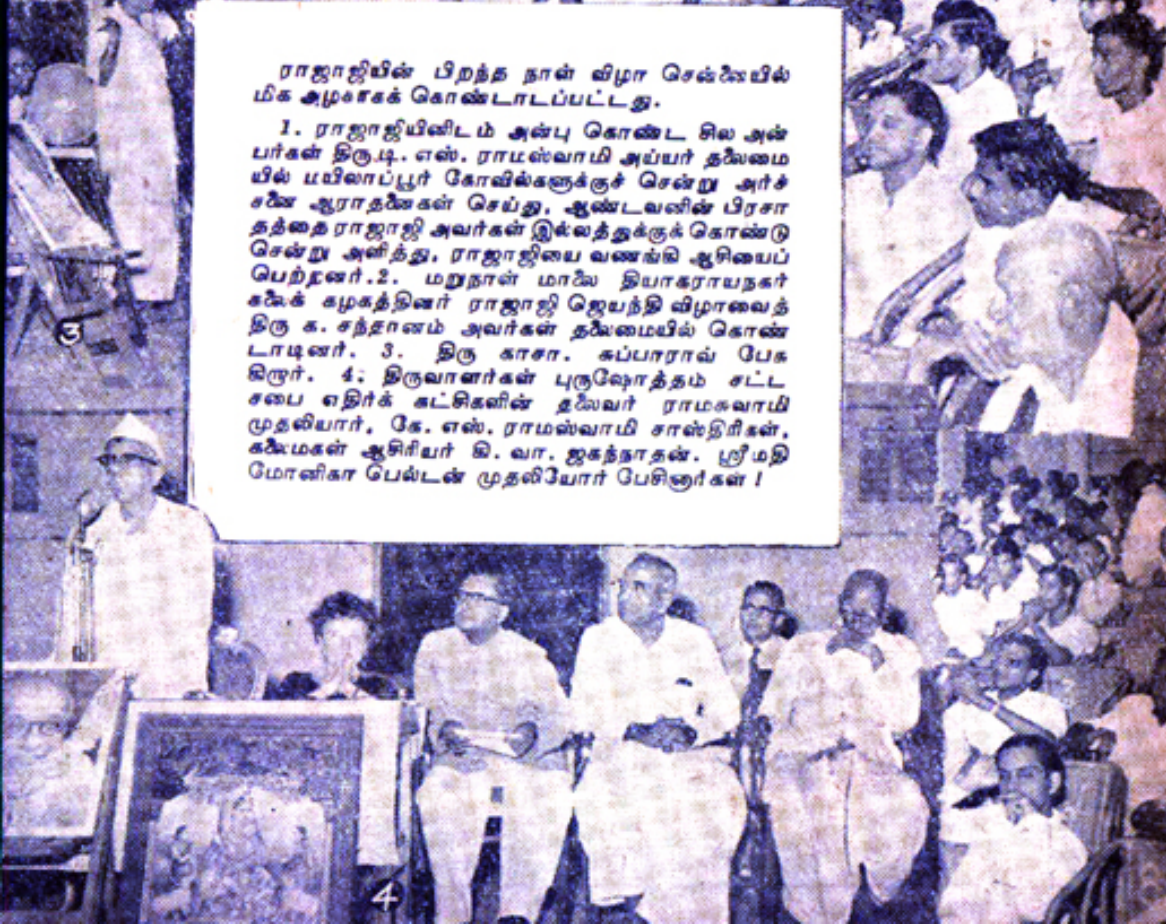 ராஜாஜியின் பிறந்த நாள் விழா சென்னையில்
மிக அழகாகக் கொண்டாடப்பட்டது.
1. ராஜாஜியினிடம் அன்பு கொண்ட சில அன்
பர்கள் திரு.டி. எஸ். ராமஸ்வாமி அய்யர் தலைமை
யில் மயிலாப்பூர் கோவில்களுக்குச் சென்று அர்ச்
சனை ஆராதனைகள் செய்து, ஆண்டவனின் பிரசா
தத்தை ராஜாஜி அவர்கள் இல்லத்துக்குக் கொண்டு
சென்று அளித்து, ராஜாஜியை வணங்கி ஆசியைப்
பெற்றனர்.2. மறுநாள் மாலை தியாகராயநகர்
கலைக் கழகத்தினர் ராஜாஜி ஜெயந்தி விழாவைத்
திரு க. சந்தானம் அவர்கள் தலைமையில் கொண்
டாடினர். 3. திரு காசா. சுப்பாராவ் பேசு
கிறார். 4. திருவாளர்கள் புருஷோத்தம் சட்ட
சபை எதிர்க் கட்சிகளின் தலைவர் ராமசுவாமி
முதலியார், கே. எஸ். ராமஸ்வாமி சாஸ்திரிகள்,
கலைமகள் ஆசிரியர் கி. வா. ஜகந்நாதன். ஸ்ரீமதி
மோனிகா பெல்டன் முதலியோர் பேசினார்கள் !
3
4